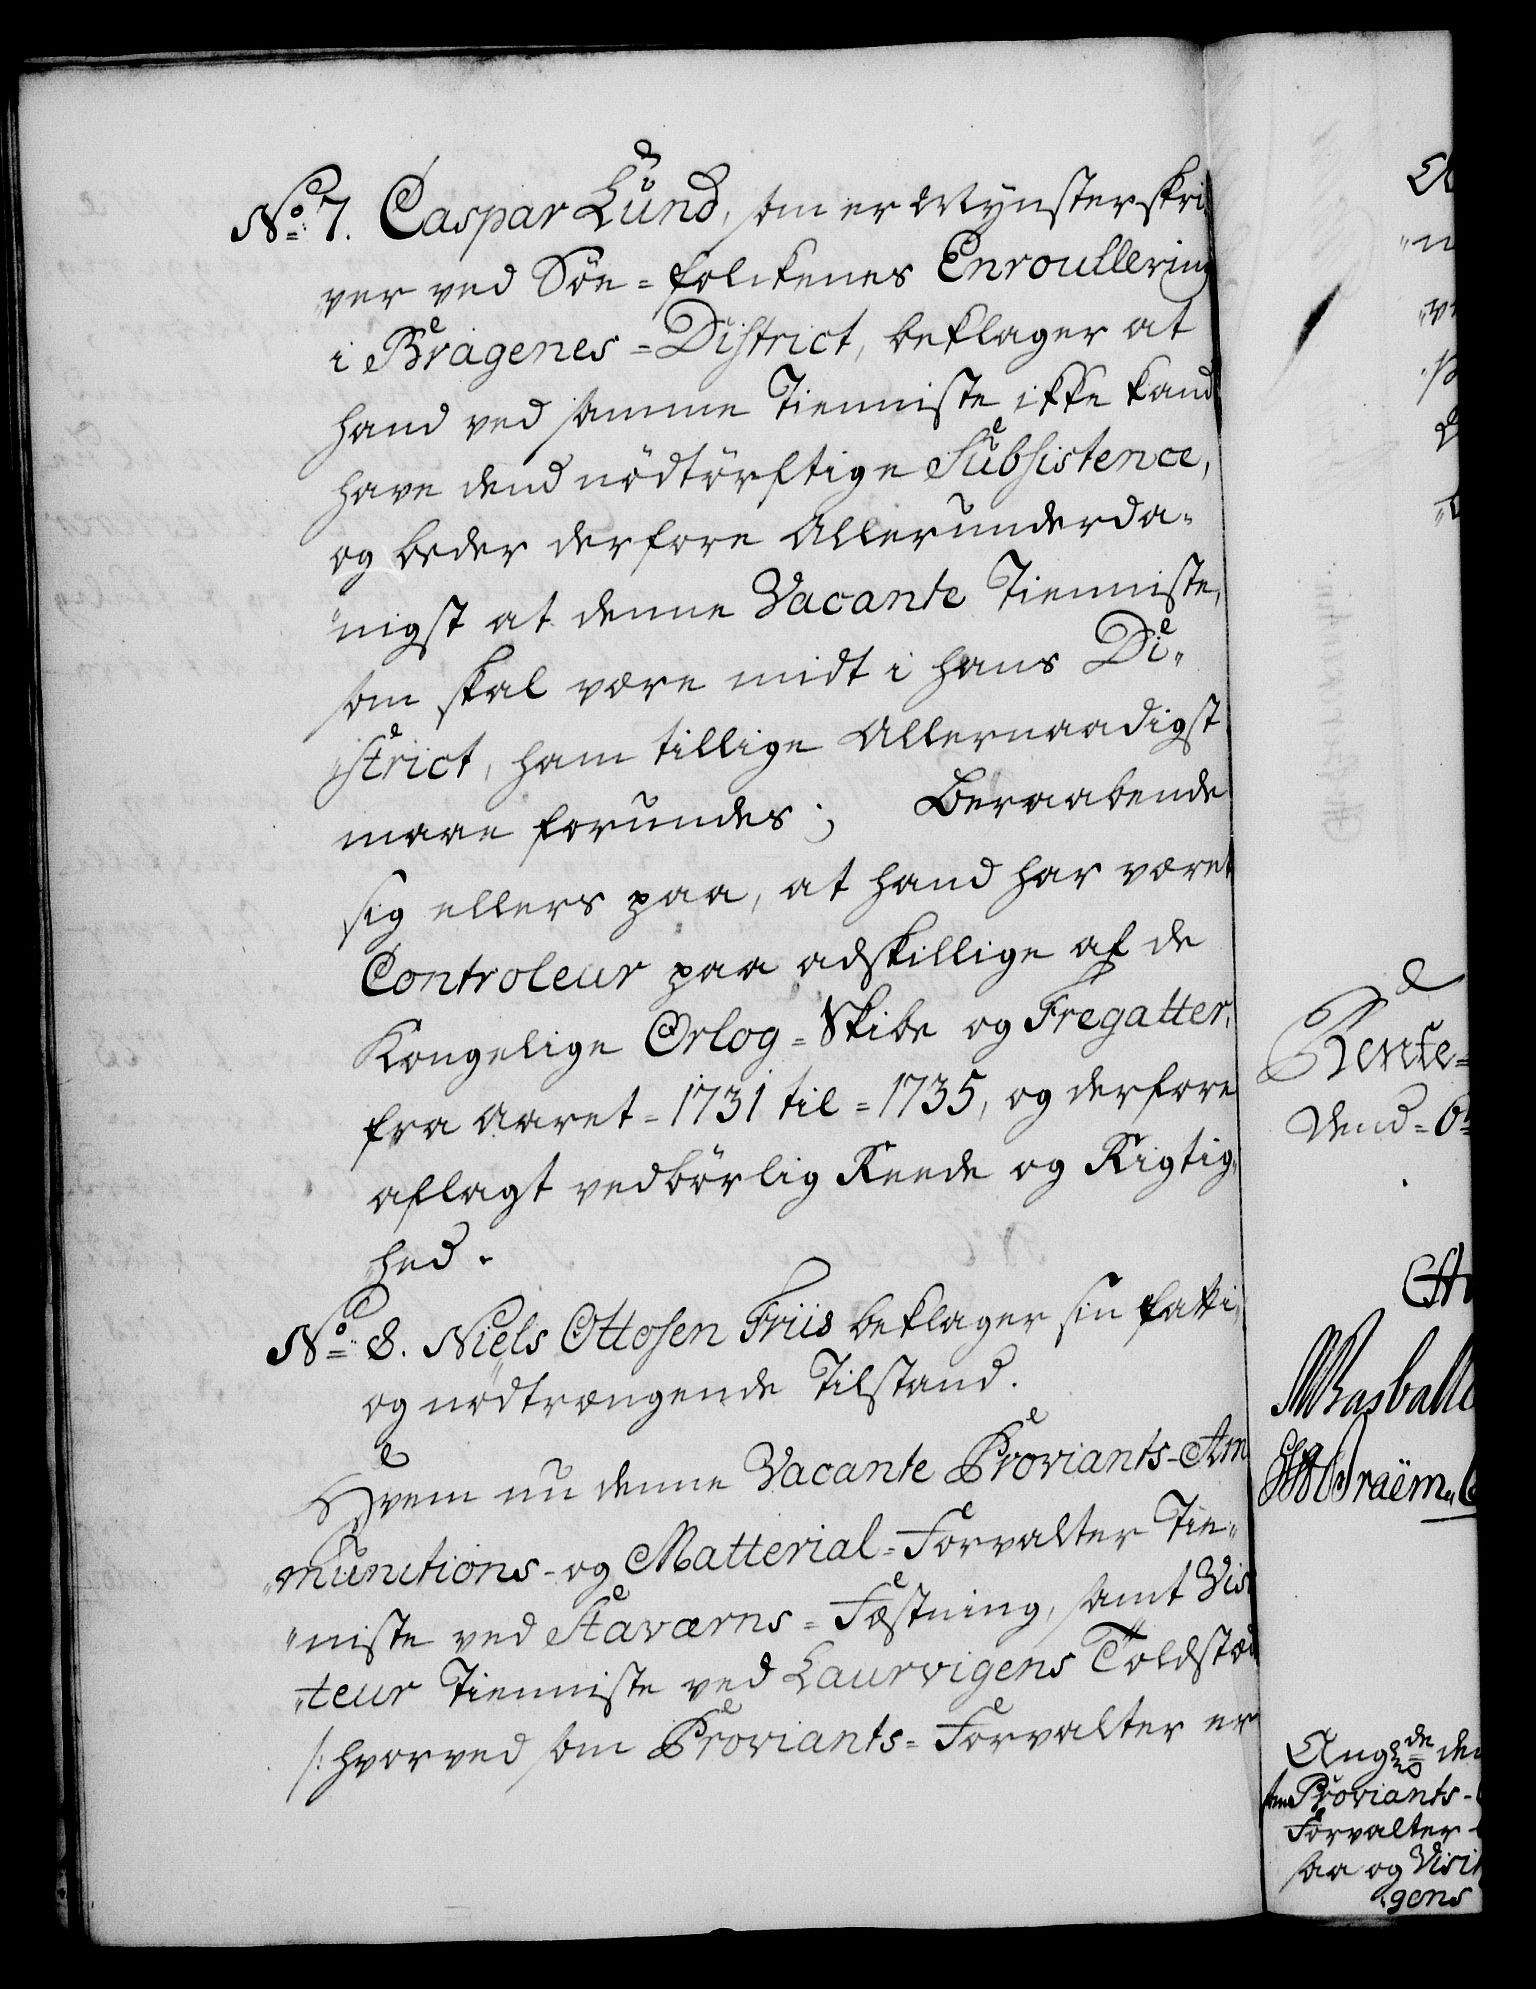 No: 7. Caspar Lund, som er Mynsterskri-
ver ved Söe-folckenes Enroullering
i Bragenes-District, beklager at
hand ved samme Tienniste ikke kand
have dend nödtörftige Subsistence,
og beder derfore Allerunderda-
"nigst at denne Vacante Tienniste,
som skal være midt i hans Di-
"strict, ham tillige Allernaadigst
maae forundes; Beraabende
sig ellers paa, at hand har været
Controleur paa adskillige af de
Kongelige Orlog-Skibe og Fregatter,
fra Aaret-1731 til-1735, og derfore
aflagt vedbörlig Reede og Rigtig-
"hed.
No: 8. Niels Ottosen Friis beklager sin fatti
og nödtrængende Tilstand.
Hvem nu denne Vacante Proviants-Am
"munitions- og Matterial-Forvalter Tie-
"niste ved Staværns-Fæstning, samt Visi
"teur Tienniste ved Laurvigens Toldstæd
/: hvorved som Proviants-Forvalter er
Rente-
Dend-6
Braëm
Angde den
Proviants-
Forvalter-
saa og Visit
"gens